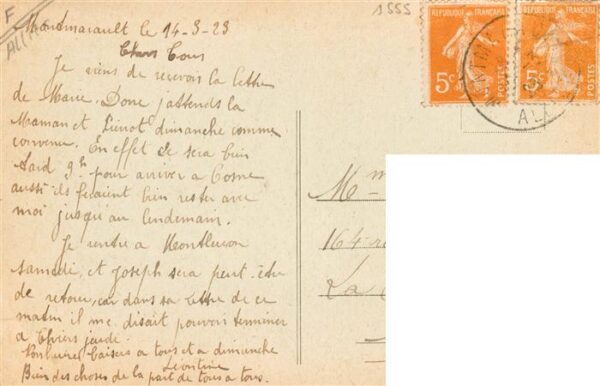 F
ALL
1555
Montmarault le 14-3-23
Chers Tous
Je viens de recevoir la lettre
de Marie. Donc j'attends la
Maman et Pierrot dimanche comme
convenu. En effet ce sera bien
tard 9h pour arriver a Cosne
aussi ils feraient bien rester avec
moi jusqu'au lendemain.
Je rentre a Montluçon
samedi, et Joseph sera peut-être
de retour, car dans sa lettre de ce
matin il me disait pouvoir terminer
a Thiers jeudi.
baisers a tous et a dimanche
Leontine
Bien des choses de la part de tous a tous.
REPUBLIQUE FRANÇAISE
5c
POSTES
REPUBLIQUE FRANÇAISE
5c
POSTES
ALL
Mme
164
La